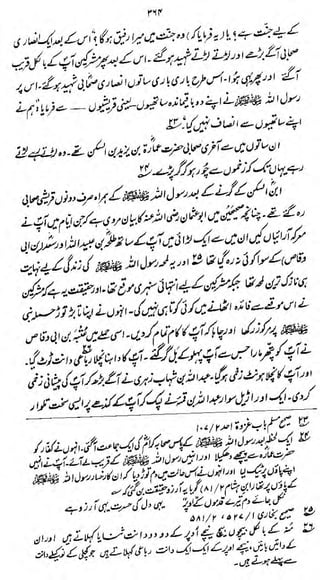 ۳۶۴
کے لیے جنت ہے؟ یا (یہ فرمایا کہ) وہ جنت میں میرا رفیق ہوگا؟ اس کے بعد ایک انصاری
صحابی آگے بڑھے اور لڑتے لڑتے شہید ہوگئے۔ اس کے بعد پھر مشرکین آپ کے بالکل قریب
آگئے اور پھر یہی ہوا۔ اس طرح باری باری ساتوں انصاری صحابی شہید ہوگئے۔ اس پر
رسول اللہ ﷺ نے اپنے دو باقیماندہ ساتھیوں ــ یعنی قریشیوں ــ سے فرمایا، ہم نے
اپنے ساتھیوں سے انصاف نہیں کیا۔ ۲۳
ان ساتوں میں سے آخری صحابی حضرت عمارہ بن یزید بن السکن تھے۔ وہ لڑتے رہے لڑتے
رہے یہاں تک کہ زخموں سے چور ہو کر گر پڑے۔ ۲۴
ابن السکن کے گرنے کے بعد رسول اللہ ﷺ کے ہمراہ صرف دونوں قریشی صحابی
رہ گئے تھے۔ چنانچہ صحیحین میں ابوعثمان رضی اللہ عنہ کا بیان مروی ہے کہ جن ایام میں آپ نے
معرکہ آرائیاں کیں ان میں سے ایک لڑائی میں آپ کے ساتھ طلحہ بن عبید اللہ اور سعد ابن ابی
وقاص کے سوا کوئی نہ رہ گیا تھا ۲۵ اور یہ لمحہ رسول اللہ ﷺ کی زندگی کے لیے نہایت
ہی نازک ترین لمحہ تھا جبکہ مشرکین کے لیے انتہائی سنہری موقع تھا۔ اور حقیقت یہ ہے کہ مشرکین
نے اس موقعے سے فائدہ اٹھانے میں کوئی کوتاہی نہیں کی۔ انہوں نے اپنا تابڑ توڑ حملہ نبی
ﷺ پر مرکوز رکھا اور چاہا کہ آپ کا کام تمام کردیں۔ اسی حملے میں عتبہ بن ابی وقاص
نے آپ کو پتھر مارا جس سے آپ پہلو کے بل گر گئے۔ آپ کا داہنا نچلا رباعی دانت ٹوٹ گیا۔
اور آپ کا نچلا ہونٹ زخمی ہوگیا۔ عبداللہ بن شہاب زہری نے آگے بڑھ کر آپ کی پیشانی زخمی
کردی۔ ایک اور اڑیل سوار عبداللہ بن قمئہ نے لپک کر آپ کے کندھے پر ایسی سخت تلوار
۲۳ صحیح مسلم باب غزوۃ احد ۲/ ۱۰۷
۲۴ ایک لحظہ بعد رسول اللہ ﷺ کے پاس صحابہ کرام کی ایک جماعت آگئی۔ انہوں نے کفار کو
حضرت عمارہ سے پیچھے دھکیلا اور انہیں رسول اللہ ﷺ کے قریب لے آئے۔ آپ نے انہیں
اپنے پاؤں پر ٹیک لیا اور انہوں نے اس حالت میں دم توڑ دیا کہ ان کا رخسار رسول اللہ ﷺ
کے پاؤں پر تھا (ابن ہشام ۲/ ۸۱) گویا یہ آرزو حقیقت بن گئی کہ ؎
نکل جائے دم تیرے قدموں کے اوپر یہی دل کی حسرت یہی آرزو ہے
۲۵ صحیح بخاری ۱/ ۵۲۷، ۲/ ۵۸۱
۲۶ منہ کے بالکل بیچوں بیچ نیچے اوپر کے دو دو دانت ثنایا کہلاتے ہیں اور ان
کے دائیں بائیں، نیچے اوپر کے ایک ایک دانت رباعی کہلاتے ہیں جو کچلی کے نوکیلے دانت
سے پہلے ہوتے ہیں۔